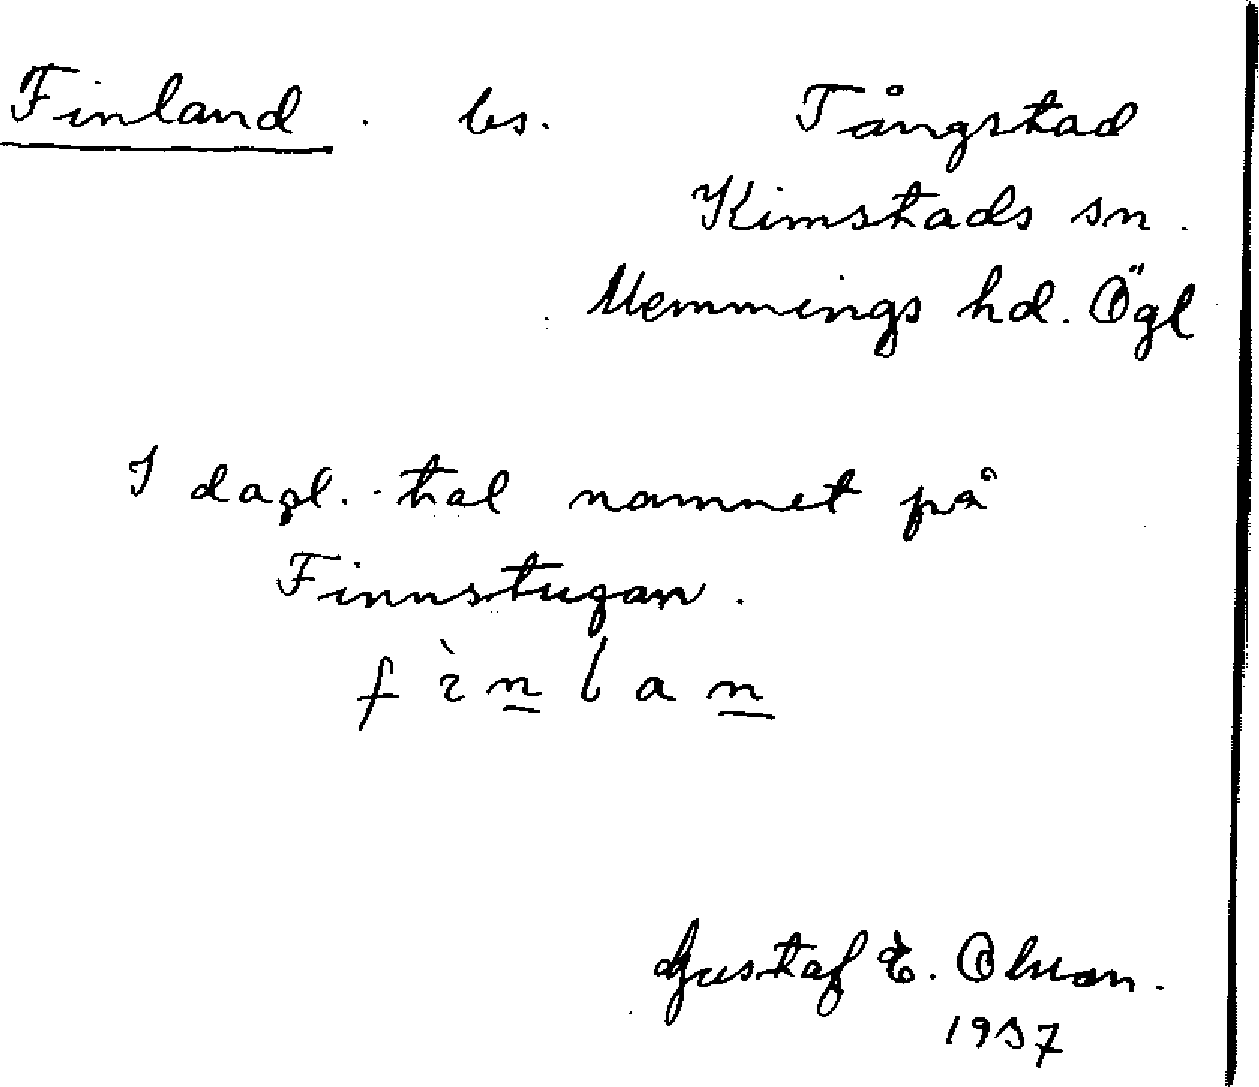 Finland. bs. Tångstad
Kimstads sn.
Memmings hd. Ögl
I dagl. tal namnet på
Finnstugan.
f ì n l a n
Gustaf E. Olson.
1937